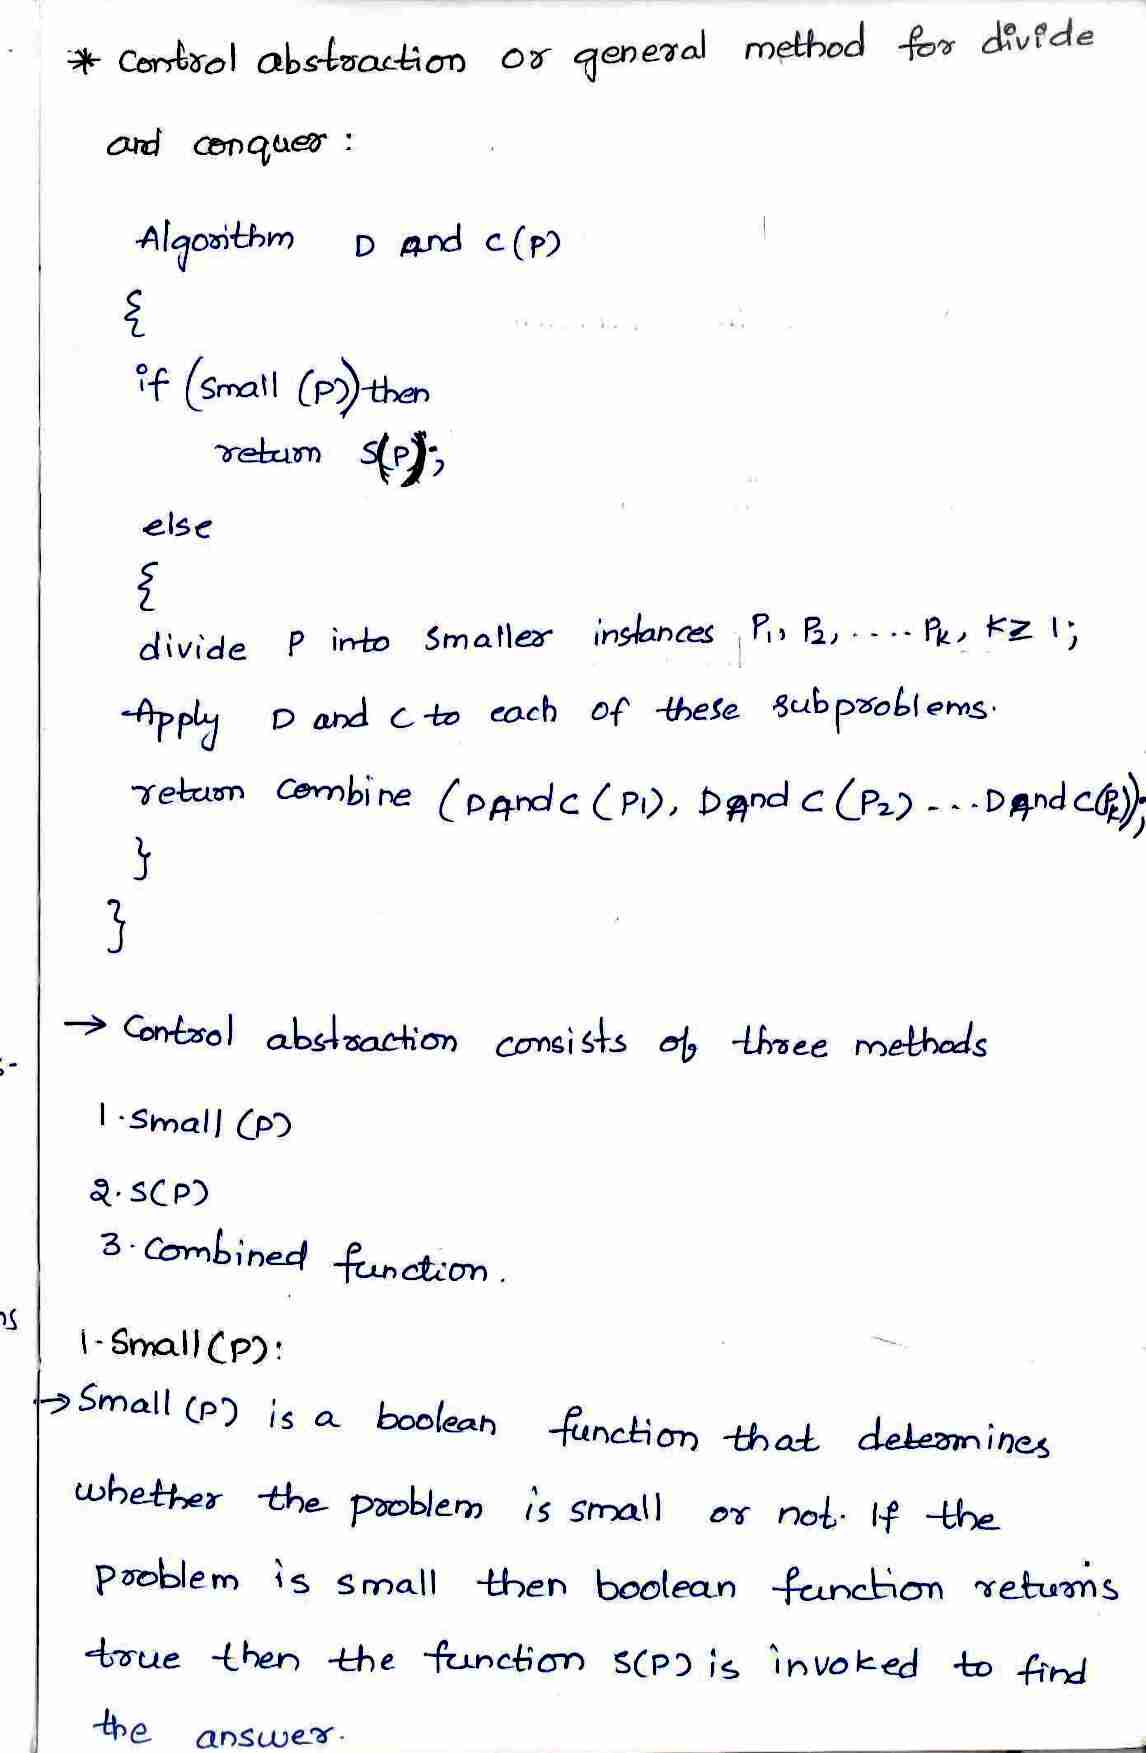 * Control abstraction or general method for divide
and conquer :
Algorithm D And C (P)
{
if (small (P)) then
return S(P);
else
{
divide P into smaller instances P1, P2, .... Pk, K≥1;
Apply D and C to each of these subproblems.
return Combine (D And C (P1), D And C (P2) - - - D And C(Pk));
}
}
→ Control abstraction consists of three methods
1. Small (P)
2. S(P)
3. Combined function.
1. Small (P):
→ Small (P) is a boolean function that determines
whether the problem is small or not. If the
problem is small then boolean function returns
true then the function S(P) is invoked to find
the answer.